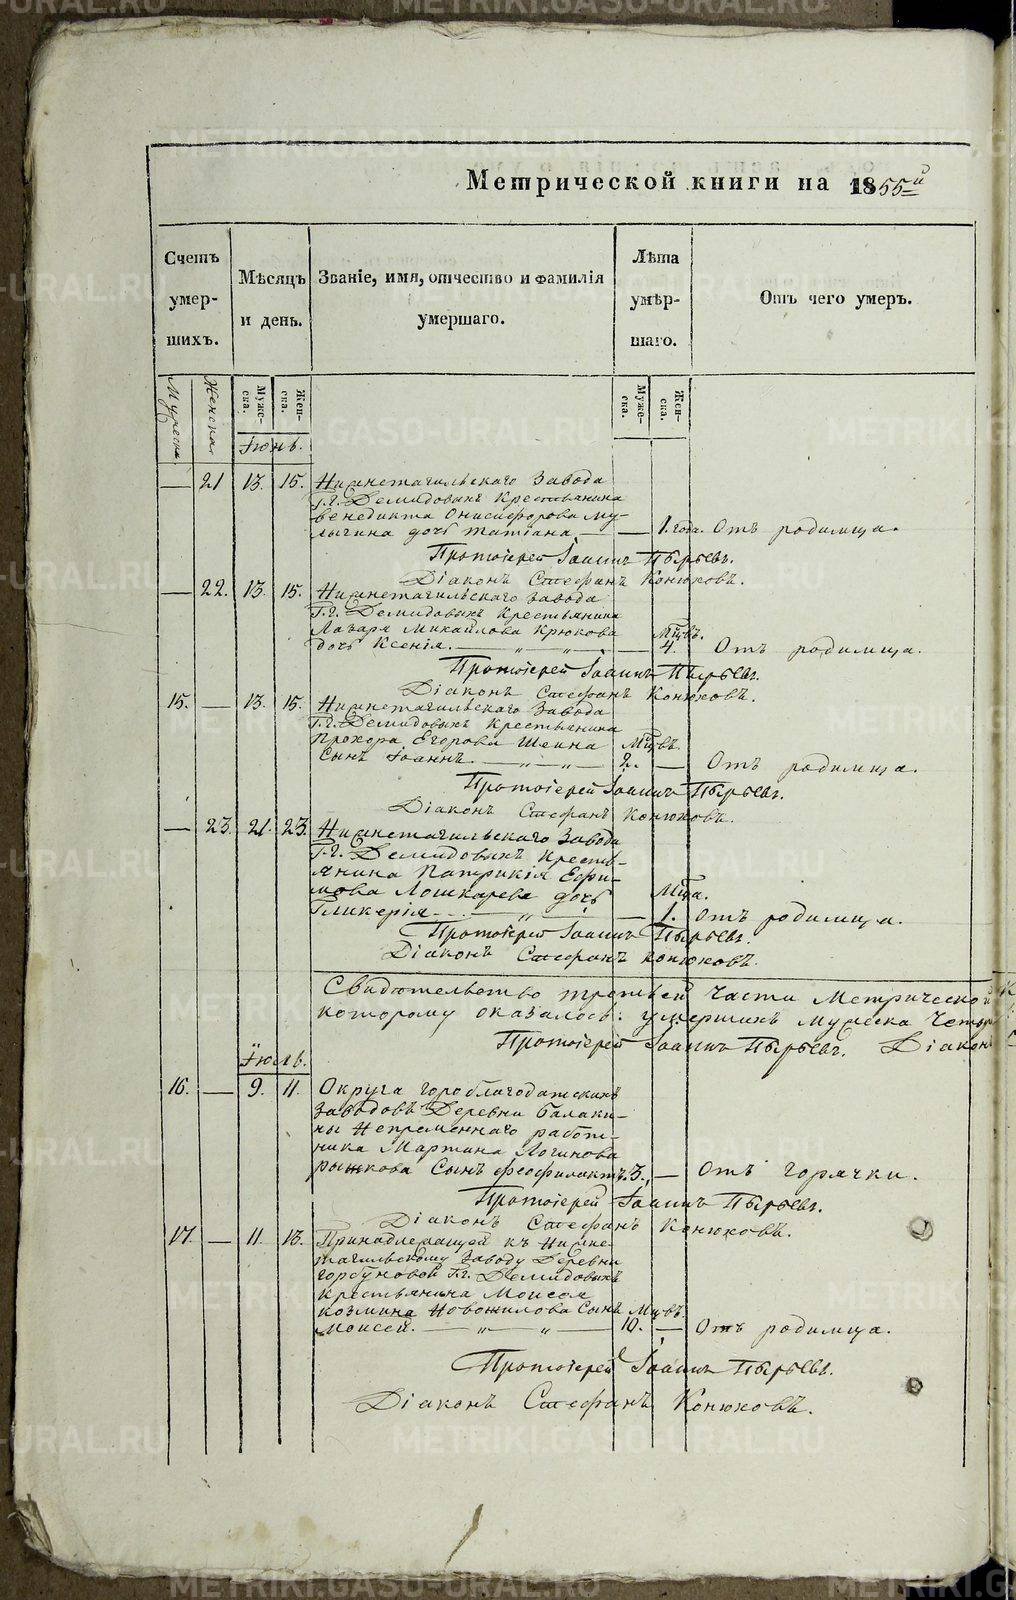 Метрической книги на 1855й
Счетъ умер- шихъ.
Мѣсяцъ и день.
Званіе, имя, отчество и фамилія умершаго.
Лѣта умер- шаго.
Отъ чего умеръ.
Мужеска
Женска
Муже- ска.
Жен- ска.
Муже- ска.
Жен- ска.
Іюнь.
— 21 13. 15. Нижнетагильскаго Завода
Г.г. Демидовыхъ Крестьянина
Венедикта Онисифорова Му-
лычина дочь Татіана — — 1. года. Отъ родимца.
Протоіерей Іоаннъ Пырьевъ.
Діаконъ Стефанъ Конюховъ.
— 22. 13. 15. Нижнетагильскаго Завода
Г.г. Демидовыхъ Крестьянина
Лазаря Михайлова Крюкова Мцвъ.
дочь Ксенія. — „ — „ — 4. Отъ родимца.
Протоіерей Іоаннъ Пырьевъ.
Діаконъ Стефанъ Конюховъ.
15. — 13. 15. Нижнетагильскаго Завода
Г.г. Демидовыхъ Крестьянина
Прохора Егорова Шеина Мцвъ.
Сынъ Іоаннъ. — „ — „ — 2. — Отъ родимца.
Протоіерей Іоаннъ Пырьевъ.
Діаконъ Стефанъ Конюховъ.
— 23. 21. 23. Нижнетагильскаго Завода
Г.г. Демидовыхъ Кресть-
янина Патрикія Ефи-
мова Лошкарева дочь Мца.
Гликерія. — „ — — 1. Отъ родимца.
Протоіерей Іоаннъ Пырьевъ.
Діаконъ Стефанъ Конюховъ.
Свидѣтельство третьей части Метрической
которому оказалось: умершихъ мужеска Четыр
Протоіерей Іоаннъ Пырьевъ. Діакон
Іюль.
16. — 9. 11. Округа Гороблагодатскихъ
заводовъ Деревни Балаки-
ны Непременнаго работ-
ника Мартина Логинова
Рыжкова Сынъ Феофилактъ. 3. — Отъ горячки.
Протоіерей Іоаннъ Пырьевъ.
Діаконъ Стефанъ Конюховъ.
17. — 11. 13. Принадлежащей къ Нижне-
тагильскому Заводу Деревни
Горбуновой Г.г. Демидовыхъ
Крестьянина Моисея
Козмина Новожилова Сынъ Мцвъ.
Моисей. — „ — „ — 10. — Отъ родимца.
Протоіерей Іоаннъ Пырьевъ.
Діаконъ Стефанъ Конюховъ.
METRIKI.GASO-URAL.RU